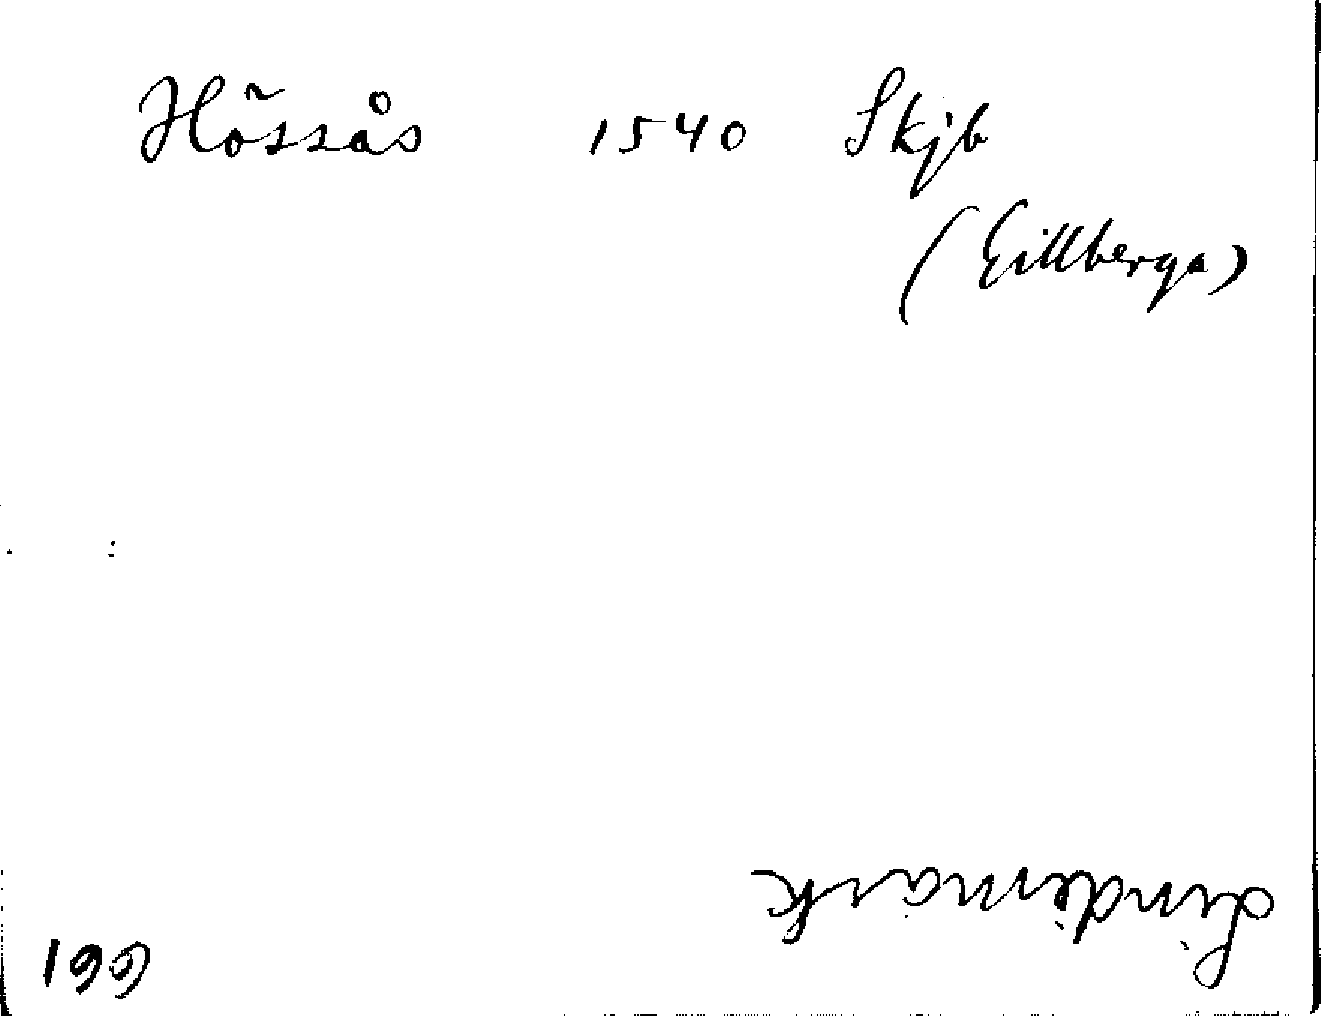 Hössås 1540 Skjb
(Gillberga)
Lindemark 661